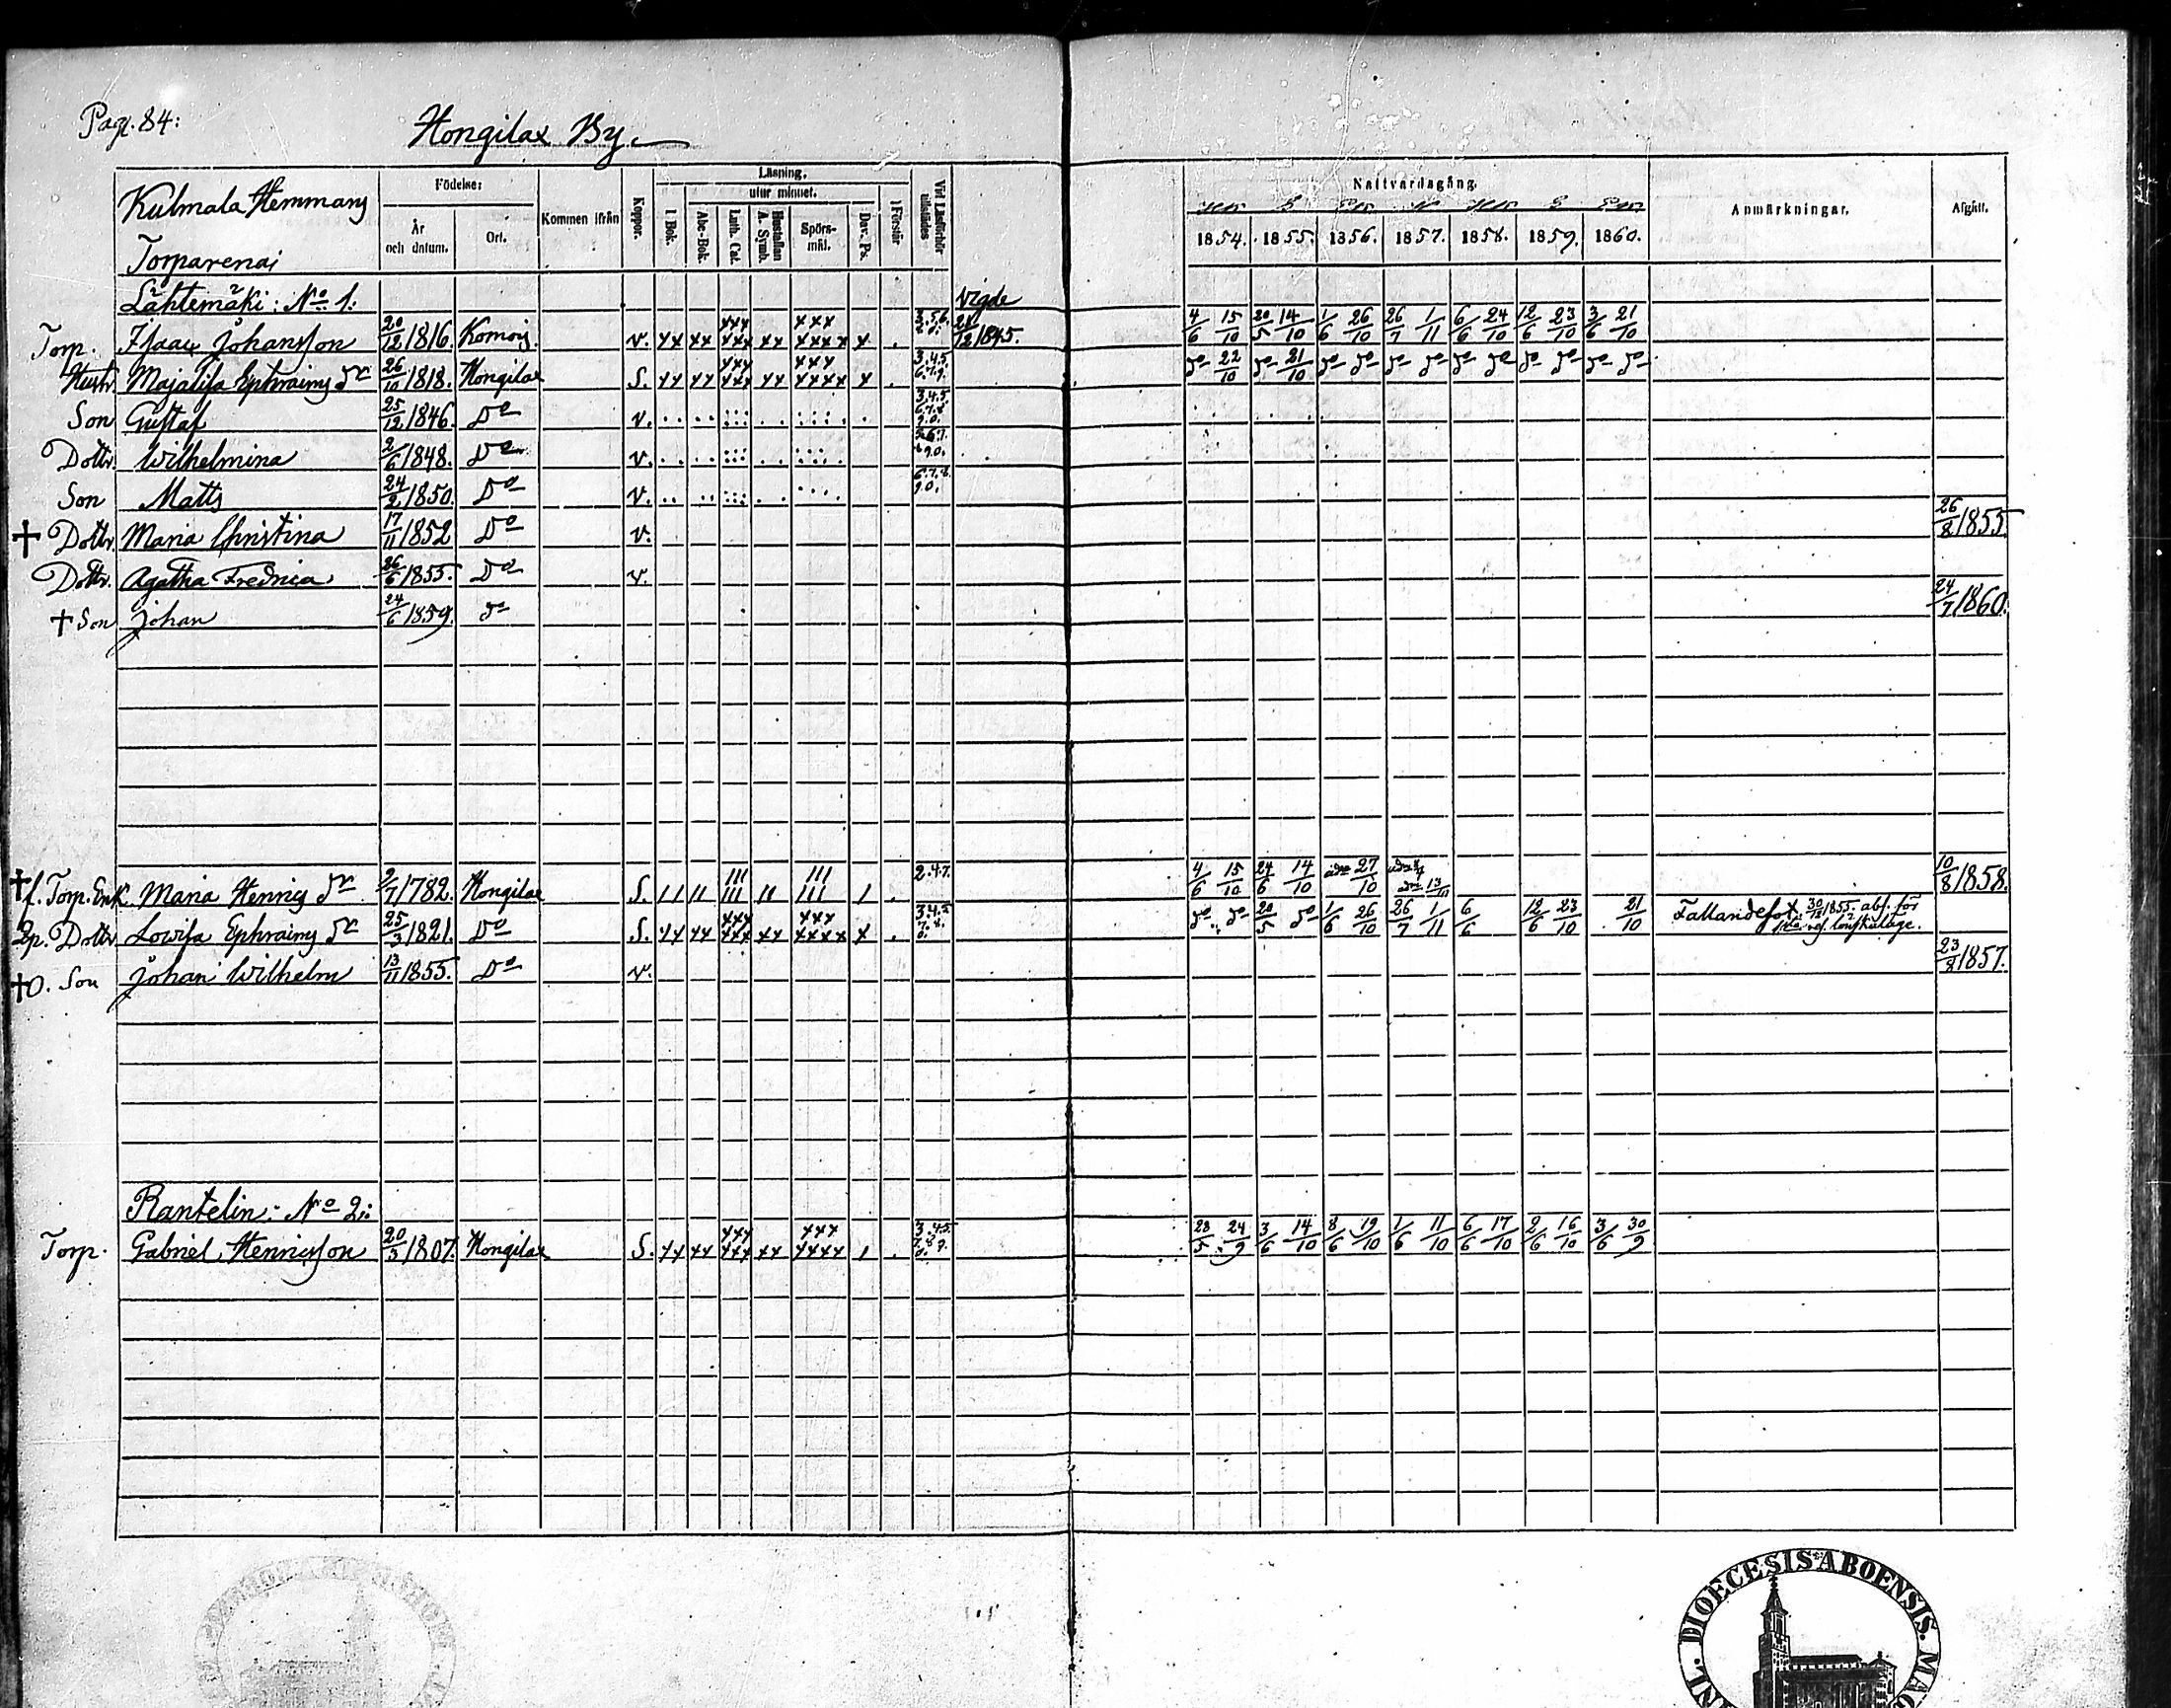 Pag. 84:
Hongilax By.
Kulmala Hemmans
Torparena;
Födelse:
År och datum.
Ort.
Kommen ifrån
Koppor.
Läsning,
utur minnet.
I Bok.
Abc-Bok.
Luth. Cat.
Hustaflan A. Symb.
Spörs-mål.
Dav. Ps.
Förstår
Vid Läsförhör tillstädes
Nattvardsgång.
1854. 1855. 1856. 1857. 1858. 1859. 1860.
Anmärkningar.
Afgått.
Lähtemäki: No 1: Vigde
Torp. Isaac Johansson 20/12 1816. v. xx xx xxx xxx xx xxx xxxx x . 1845. 4/6 15/10 20/5 14/10 1/6 26/10 26/7 1/11 6/6 24/10 12/6 23/10 3/6 21/10
Hustr. Majalisa Ephraims dr 26/10 1818. Hongilax S. xx xx xxx xxx xx xxx xxxx x . 3.4.5. do 22/10 do 21/10 do do do do do do do do do do
Son Gustaf 25/12 1846. Do v. 3.4.5. 6.7.8. 9.0.
Dottr. Wilhelmina 2/6 1848. Do v.
Son Matts 24/2 1850. Do v. 6.7.8. 9.0.
† Dottr. Maria Christina 17/11 1852 Do v. 26/8 1855.
Dottr. Agatha Fredrica 26/6 1855. Do v.
† Son Johan 24/6 1859. do 24/7 1860.
† f. Torp. Enk. Maria Henrics dr 2/7 1782. Hongilax S. 11 11 111 111 11 111 111 1 . 2.4.7. 4/6 15/10 24/6 14/10 27/10 13/10 10/8 1858.
Dottr Lovisa Ephraims dr 25/3 1821. Do S. xx xx xxx xxx xx xxx xxxx x . do do 20/5 do 1/6 26/10 26/7 1/11 6/6 12/6 23/10 21/10 Fallandesot. 30/12 1855. abs. för lönskaläge.
† O. Son Johan Wilhelm 13/11 1855. Do v. 23/8 1857.
Rantelin: No 2:
Torp. Gabriel Henricsson 20/3 1807. Hongilax S. xx xx xxx xxx xx xxx xxxx 1 . 28/5 24/9 3/6 14/10 8/6 19/10 1/6 11/10 6/6 17/10 2/6 16/10 3/6 30/9
DIOECESIS ABOENSIS.